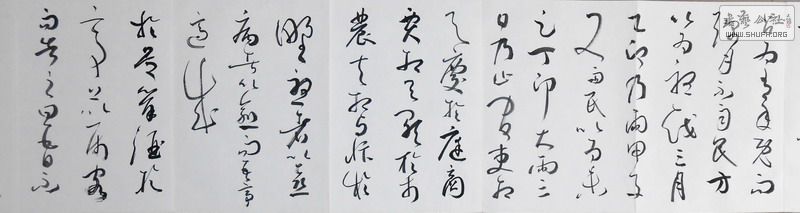 占为有年既而
弥月不雨民方
以为忧越三月
乙卯乃雨甲子
又雨民以为未
足丁卯大雨三
日乃止官吏相
与慶於庭商
贾相与歌於市
農夫相与忭於
野憂者以喜
病者以愈而吾亭
適成
於是举酒於
亭上以属客
而告之曰五日不
书艺公社
WWW.SHUFA.ORG